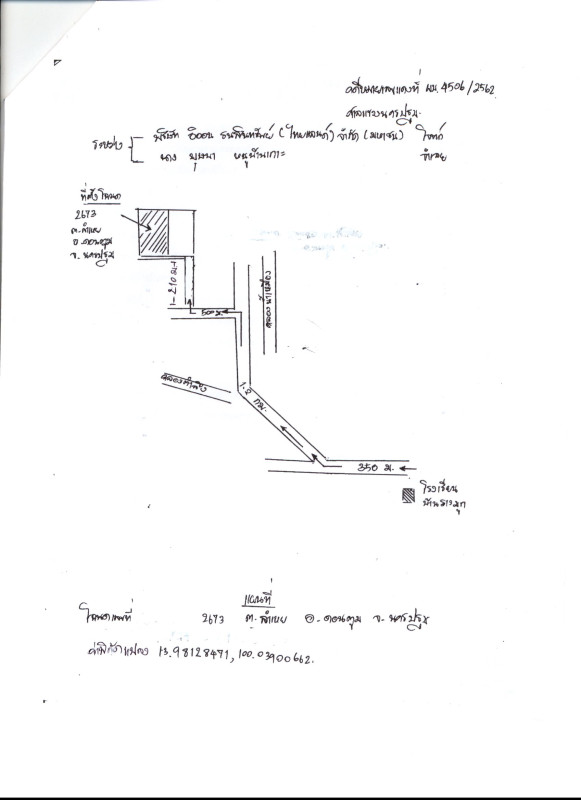 คดีหมายเลขแดงที่ ผบ. 4506/2562
ศาลแขวงนครปฐม
ระหว่าง บริษัท อิออน ธนสินทรัพย์ (ไทยแลนด์) จำกัด (มหาชน) โจทก์
นาง จำเลย
ที่ตั้งโฉนด
2673
ต.ลำเหย
อ.ดอนตูม
จ.นครปฐม
210 ม.
500 ม.
คลองน้ำเมือง
คลอง
1.2 กม.
350 ม.
โรงเรียน
บ้าน
แผนที่
โฉนดเลขที่ 2673 ต.ลำเหย อ.ดอนตูม จ.นครปฐม
ค่าพิกัดแปลง 13.98128471, 100.03900662.